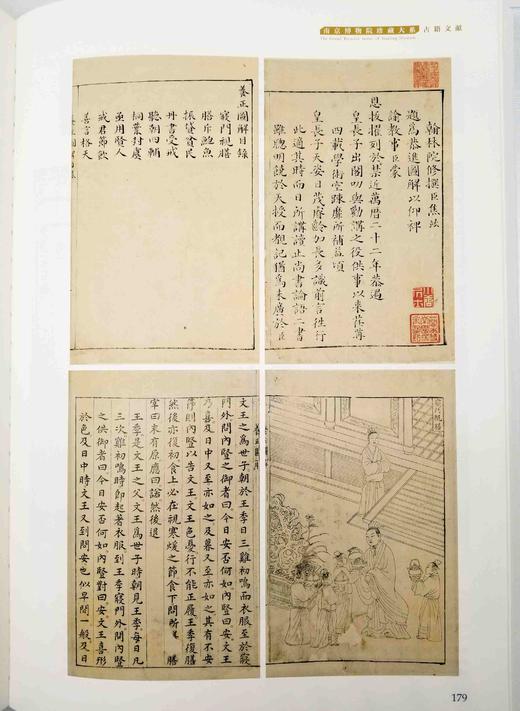 南京博物院珍藏大系 古籍文献
The Grand Precious Series of Nanjing Museum
翰林院修撰臣焦竑
題為恭進圖解以仰裨
諭教事臣蒙
恩拔擢列於禁近萬曆二十二年恭遇
皇長子出閣叨與勸講之役供事以來荏苒
四載學術空疎靡所補益頃
皇長子天姿日茂睿齡加長多識前言往行
此適其時而日所講讀止尚書論語二書
雖聰明饒於天授而覩記猶為未廣於臣
養正圖解目錄
寢門視膳
膳斥鮑魚
振貸貧民
丹書受戒
聽朝四輔
桐葉封虞
亟用賢人
戒君節飲
善言格天
寢門視膳
養正圖解
文王之為世子朝於王季日三雞初鳴而衣服至於寢
門外問內豎之御者曰今日安否何如內豎曰安文王
乃喜及日中又至亦如之及暮又至亦如之其有不安
節則內豎以告文王文王色憂行不能正履王季復膳
然後亦復初食上必在視寒煖之節食下問所 膳
宰曰末有原應曰諾然後退
王季是文王之父文王為世子時朝見王季每日凡
三次雞初鳴時即起著衣服到王季寢門外問內豎
之供御者曰今日安否何如內豎對曰安文王喜形
於色及日中時文王又到問安也似早間一般及日
179